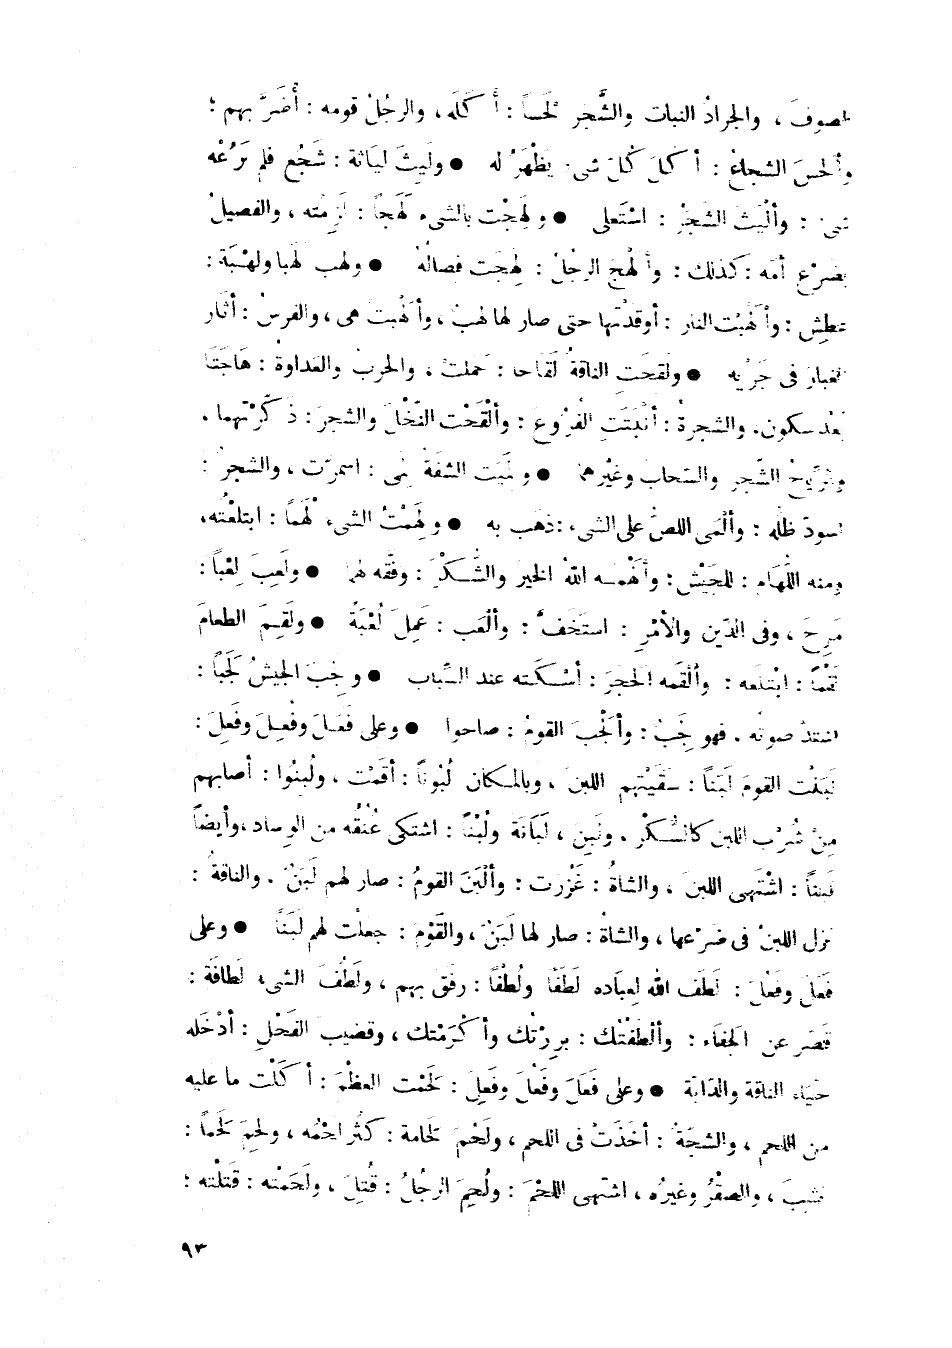 الصوفَ ، والجرادُ النبات والشَّجر لَحْساً : أَكَلَه ، والرجُلُ قومه : أَضَرَّ بهم ؛
وأَلحسَ الشجاعُ : أَكلَ كُلَّ شىءٍ يَظْهَرُ له ● ولَيِثَ لَيَاثَة : شَجُع فلم يَرُعْه
شىء : وأَلْيَثَ الشَّجرُ : اسْتَعلى ● ولَهِجْت بالشىء لَهَجاً : لَزِمْته ، والفصيلُ
بِضَرْعِ أُمّه : كذلك : وأَلْهَجَ الرجلُ : لَهِجَت فِصالُهُ ● ولهب لَهَبا ولَهْبَة :
عَطِش : وأَلْهَبْت النار : أوقَدْتها حتى صار لها لهبٌ ، وأَلْهَبت هى ، والفرسُ : أَثَار
الغبار فى جَرْيه ● ولَقِحَتِ الناقةُ لَقَاحا : حَملتْ ، والحربُ والعَداوةُ : هَاجَتَا
بَعْد سكون. والشجرةُ : أَنْبَتَتِ الفُرُوعَ : وأَلْقَحْت النَّخْلَ والشجرَ : ذَكَّرْتهما .
والرِّيحُ الشَّجرَ والسَّحابَ وغَيْرهما ● ولَمِيَت الشَّفَةُ لَمًى : اسمرَّت ، والشجرُ :
اسودّ ظلّه : وأَلْمَى اللصُّ على الشىء : ذهَب به ● ولَهِمْتُ الشىءَ لَهْماً : ابتلَعْتُه ،
ومنه اللُّهَام : للجَيْش : وأَلْهَمَـه اللهُ الخيرَ والشُّـكْرَ : وفَّقَه لهما ● ولَعِبَ لَعْباً :
مَرِحَ ، وفى الدِّين والأَمْرِ : استَخَفَّ : وأَلْعَب : عَمِلَ لُعْبَةً ● ولَقِمَ الطعامَ
لَقْماً : ابْتلَعَه : وأَلْقَمه الحجَرَ : أَسْكَتَه عند السِّباب ● ولَجِبَ الجيشُ لَجَباً :
اشتدّ صوتُه . فهو لَجِبٌ : وأَلْجَبَ القومُ : صاحوا ● وعلى فَعَـلَ وفُعِـلَ وفَعِلَ :
لَبَنْت القومَ لَبَناً : سَقَيْتهم اللبنَ ، وبالمـكان لُبُوناً : أَقَمْت ، ولُبِنُوا : أصابهم
مِنْ شُرْب اللبن كالسُّـكْر . ولَبِن ، لَبَانَة ولُبْناً : اشتكى عُنُقَه من الوِساد ، وأيضاً
لَبَناً : اشْتَهى اللبنَ ، والشاةُ : غَزُرت : وأَلْبَنَ القومُ : صار لهم لَبَنٌ . والناقةُ :
نزل اللبنُ فى ضَرْعها ، والشاةُ : صار لها لَبَنٌ ، والقَوْمَ : جعلْت لهم لَبَناً ● وعلى
فَعَلَ وفَعُلَ : لَطَفَ الله لِعِبَاده لَطَفًا ولُطْفًا : رفَق بهم ، ولَطُفَ الشىء لَطافَة :
قَصُر عن الجَفَاء : وأَلْطَفْتُك : بررْتك وأَكْرَمْتك ، وقضيب الفَحْل : أَدْخَله
حَيَاء الناقة والدَّابَة ● وعلى فَعَلَ وفَعُلَ وفَعِلَ : لَحَمْت العظْمَ : أَكَلْت ما عليه
من اللحم ، والشَّجَّةُ : أَخَذَتْ فى اللحم ، ولَحُمَ لَحَامة : كثُر لَحْمُه ، ولَحِمَ لَحَماً :
نَشِبَ ، والصقْرُ وغيرُه ، اشتهى اللحْمَ : ولُحِمَ الرجُلُ : قُتِلَ ، ولَحَمْته : قَتَلْته ؛
٩٣